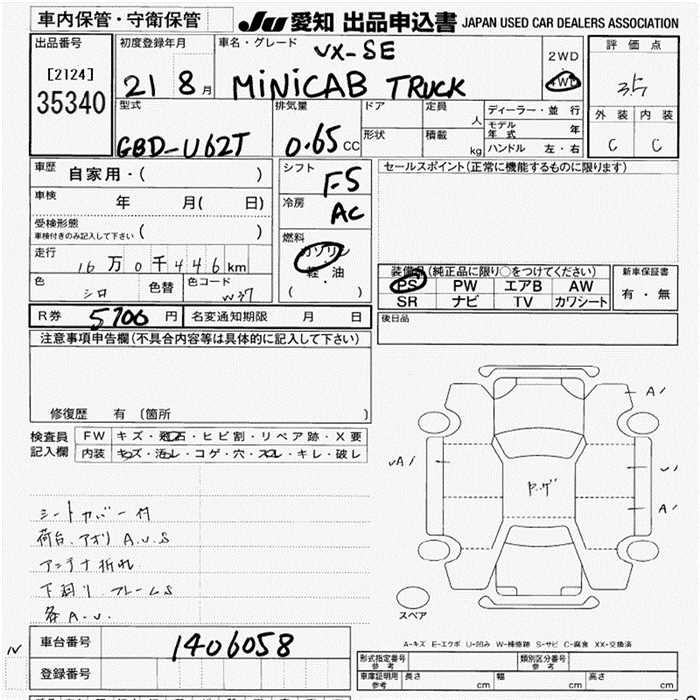 車内保管・守衛保管
JU 愛知 出品申込書 JAPAN USED CAR DEALERS ASSOCIATION
出品番号
[2124]
35340
初度登録年月
21 8月
車名・グレード
VX-SE
MiNiCAB TRUCK
2WD
4WD
評価点
3.5
外装 内装
C C
型式
GBD-U62T
排気量
0.65 CC
ドア
形状
定員
人
積載
kg
ディーラー・並行
モデル年式 年
ハンドル 左・右
車歴 自家用・( )
車検 年 月( 日)
受検形態
車検付きのみ記入して下さい ( )
走行
16万0千446km
色 シロ 色替 色コード W37
シフト F5
冷房 AC
燃料
ガソリン
軽・油
( )
セールスポイント(正常に機能するものに限ります)
装備品(純正品に限り○をつけてください)
PS PW エアB AW
SR ナビ TV カワシート
新車保証書
有・無
R券 5700 円 名変通知期限 月 日
後日品
注意事項申告欄(不具合内容等は具体的に記入して下さい)
修復歴 有(箇所 )
検査員記入欄
FW キズ・飛石・ヒビ割・リペア跡・X要
内装 キズ・汚レ・コゲ・穴・スレ・キレ・破レ
シートカバー付
荷台、アオリ A.U.S
アンテナ折れ
下回り フレームS
各A.U.
A1
A1
スペア
A-キズ E-エクボ U-凹み W-補修跡 S-サビ C-腐食 XX-交換済
車台番号 1406058
登録番号
型式指定番号
参考
類別区分番号
参考
車庫証明用
参考
長さ cm 幅 cm 高さ cm